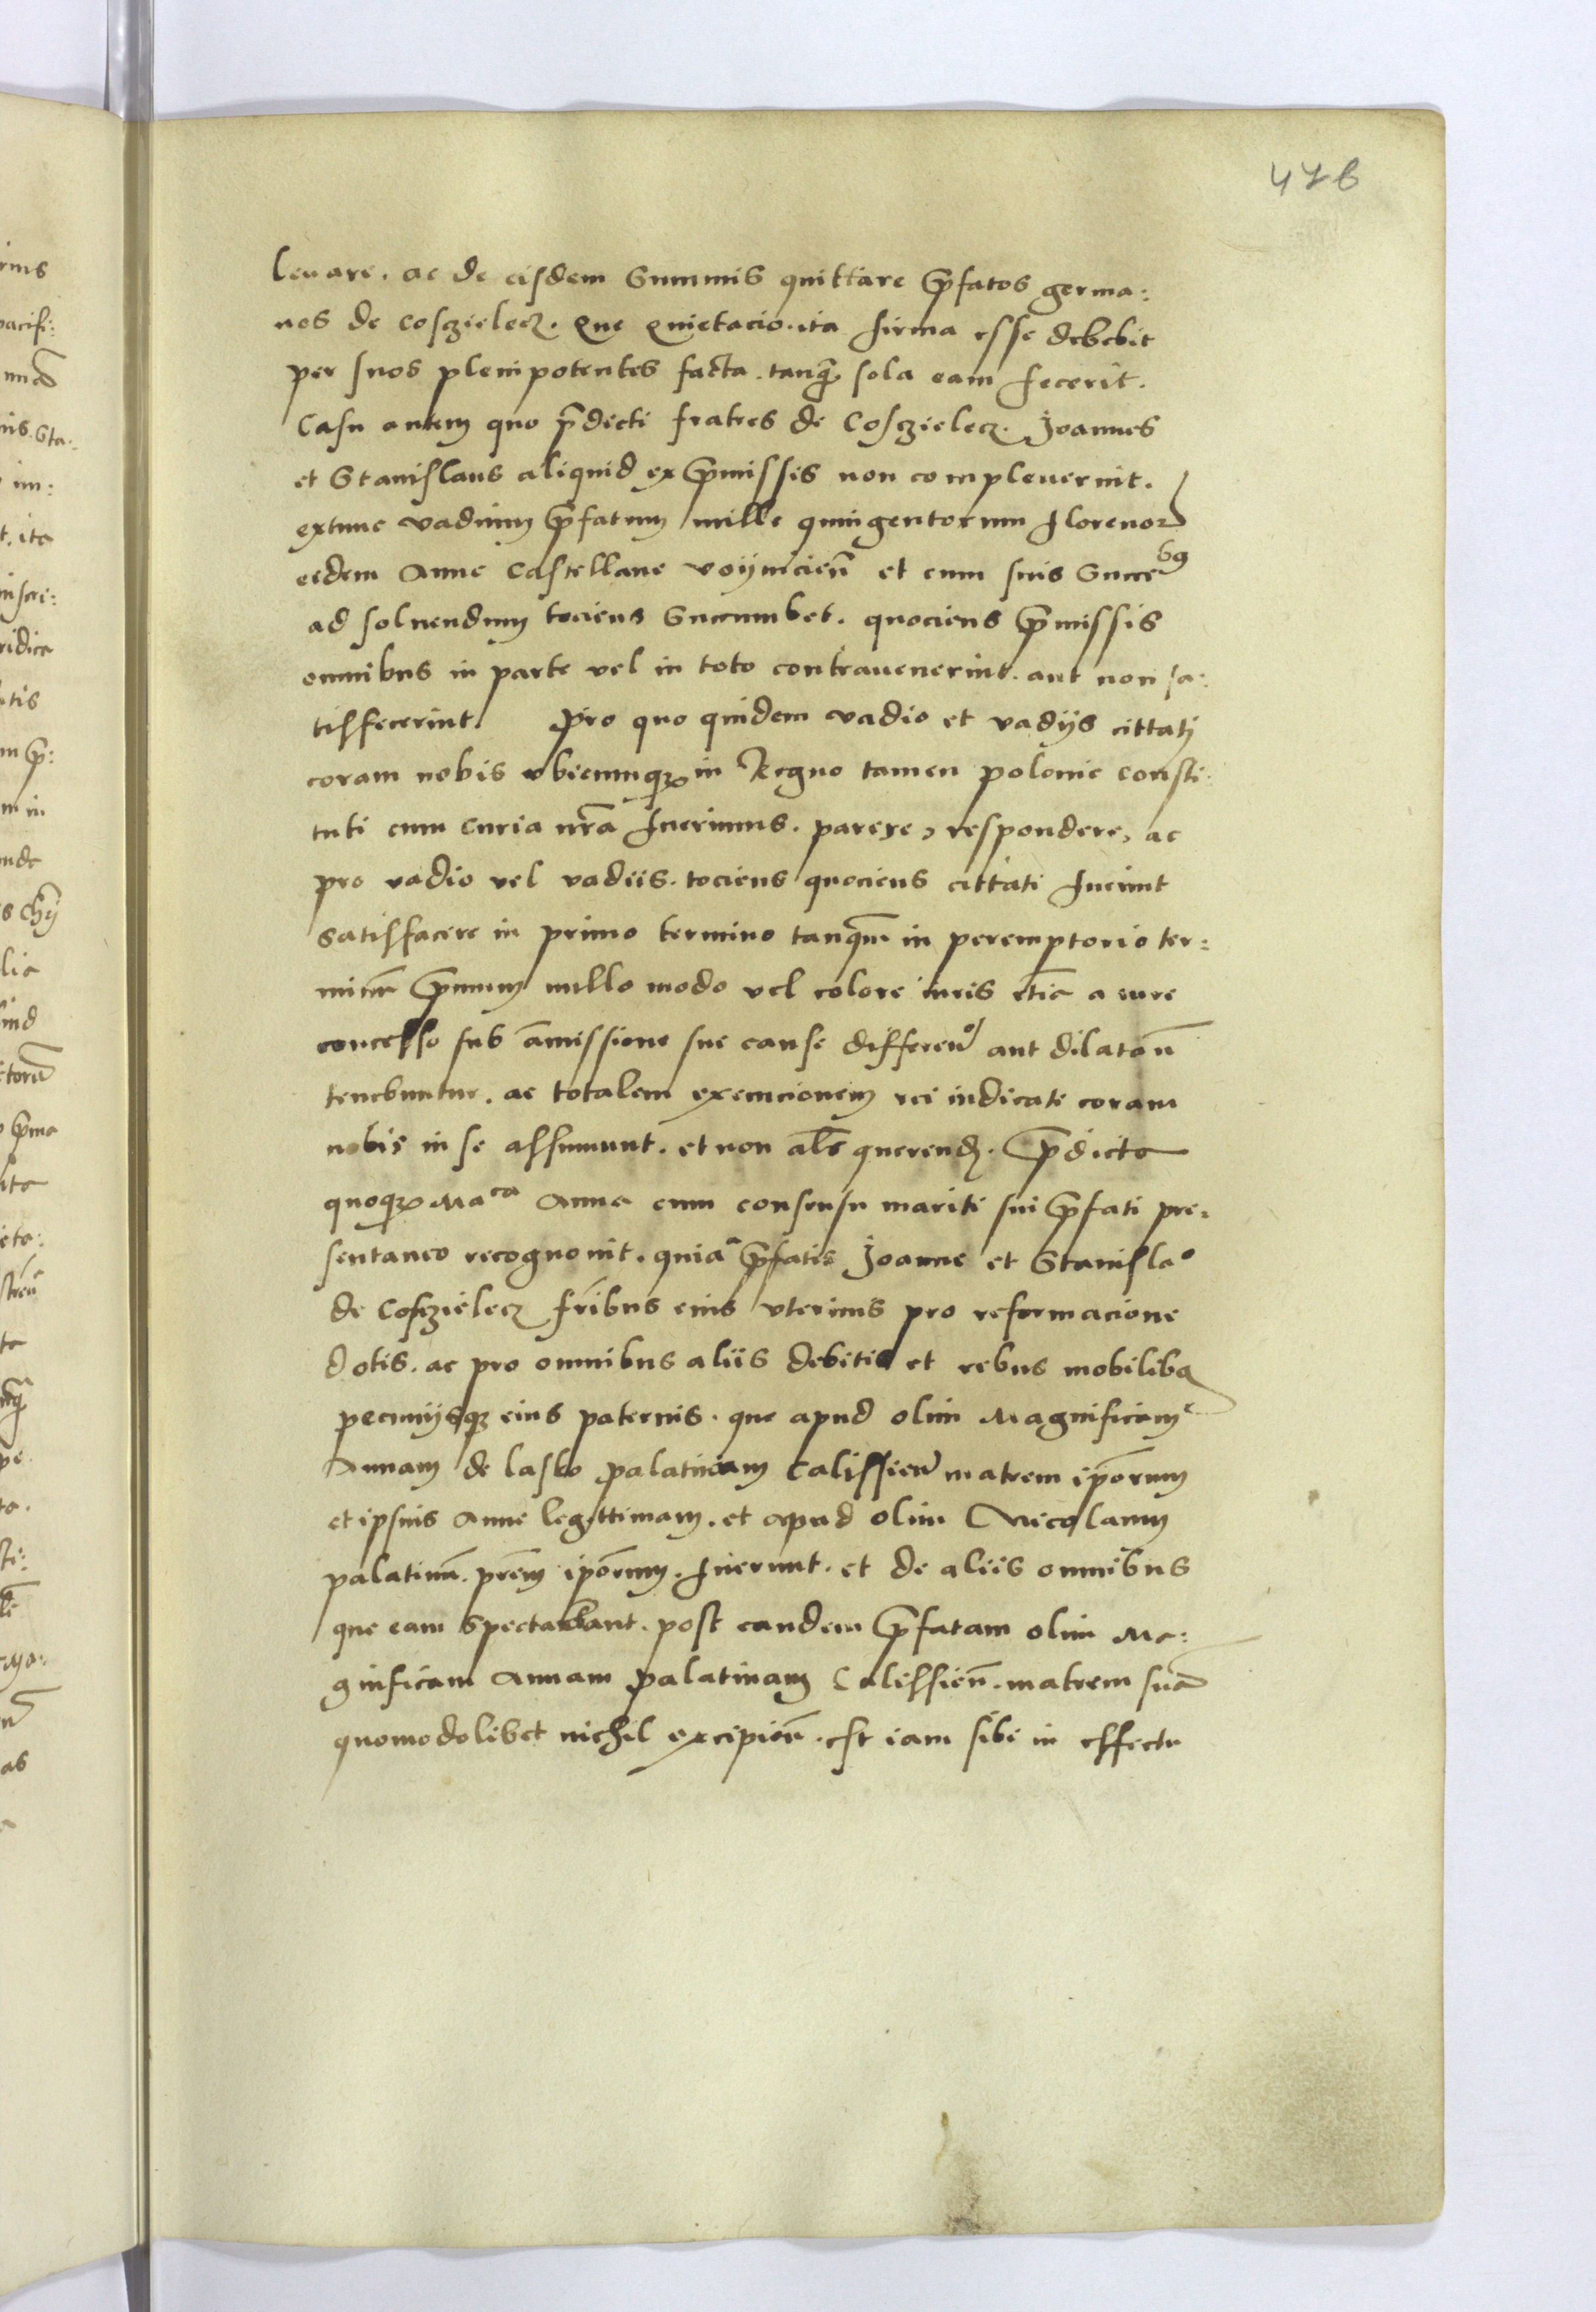 476
leuare. ac de eisdem Summis quittare p̄fatos germa:
nos de Cosczielecz. Que Quietacio. ita firma esse debebit
per suos plenipotentes facta. tanq̄ sola eam fecerit.
Casu autem quo p̄dicti fratres de Cosczielecz. Joannes
et Stanislaus aliquid ex p̄missis non compleuerint.
extunc vadium p̄fatum mille quingentorum florenoꝝ
eidem Anne Castellane voynicien̄ et cum suis Succeꝰ
ad soluendum tociens Succumbet. quociens p̄missis
omnibus in parte vel in toto contrauenerint. aut non sa:
tisfecerint. Pro quo quidem vadio et vadijs cittati
coram nobis vbicumqꝫ in Regno tamen polonie consti:
tuti cum Curia nrā fuerimus. parere, respondere, ac
pro vadio vel vadiis. tociens quociens cittati fuerint
satisfacere in primo termino tanquam in peremptorio ter:
minū p̄mum nullo modo vel colore iuris etiā a iure
concesso sub amissione sue cause differen̄ aut dilatan̄
tenebuntur. ac totalem execucionem rei iudicate coram
nobis in se assumunt. et non alr̄ querend̄. P̄dicta
quoqꝫ Maca Anna cum consensu mariti sui p̄fati pre:
sentaneo recognouit. quia p̄fatis Joanne et Stanislao
de Cosczielecz fr̄ibus eius vterinis pro reformacione
dotis. ac pro omnibus aliis debitis et rebus mobilibꝫ
pecuniisqꝫ eius paternis. que apud olim Magnificam
Annam de lasko palatinam Calissien̄ matrem ip̄orum
et ipsius Anne legittimam. et apud olim Nicolaum
palatinū. pr̄em ip̄orum. fuerunt. et de aliis omnibus
que eam spectabant. post eandem p̄fatam olim Ma:
gnificam Annam palatinam Calissien̄. matrem suā
quomodolibet nichil excipien̄. est iam sibi in effectu